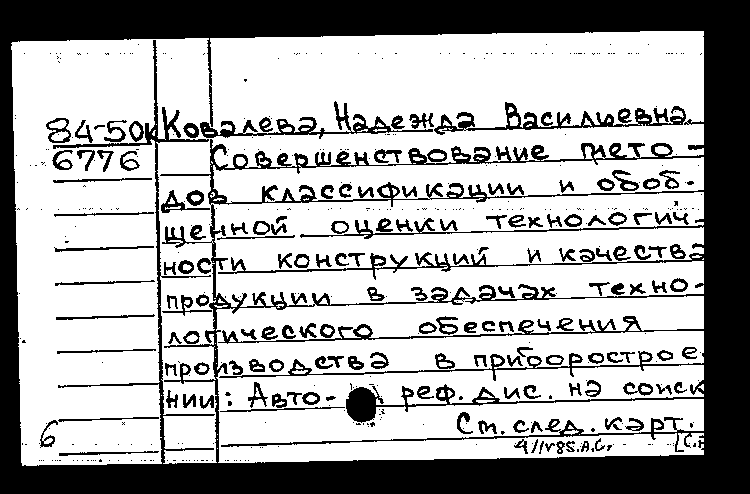 84-50к Ковалева, Надежда Васильевна.
6776 Совершенствование мето-
дов классификации и обоб-
щенной оценки технологич-
ности конструкций и качества
продукции в задачах техно-
логического обеспечения
производства в приборострое-
нии: Авто- реф. дис. на соиск
См. след. карт.
6